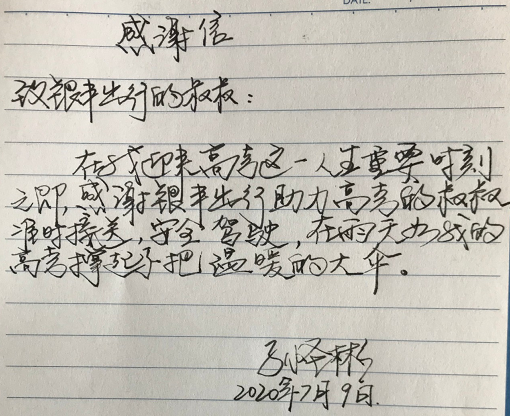 DATE.
感谢信
致银丰出行的叔叔：
在我迎来高考这一人生重要时刻
之即，感谢银丰出行助力高考的叔叔
准时接送，安全驾驶，在雨天为我的
高考撑起了把温暖的大伞。
2020年7月9日.